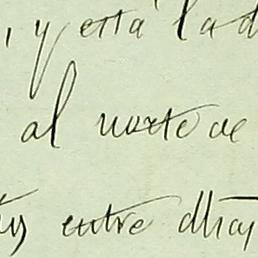 , y está la
al norte de
entre dhas